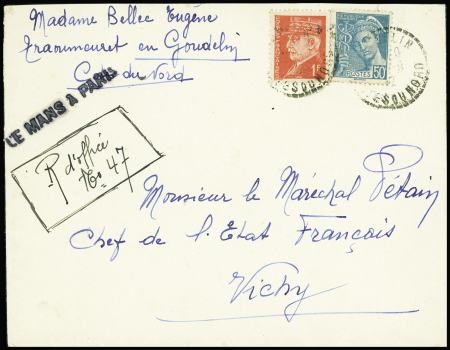 Madame Bellec Eugène
en Goudelin
C. du Nord
LE MANS A PARIS
R d'office
No 47
1F
POSTES 50
Monsieur le Maréchal Pétain
Chef de l'Etat Français
Vichy